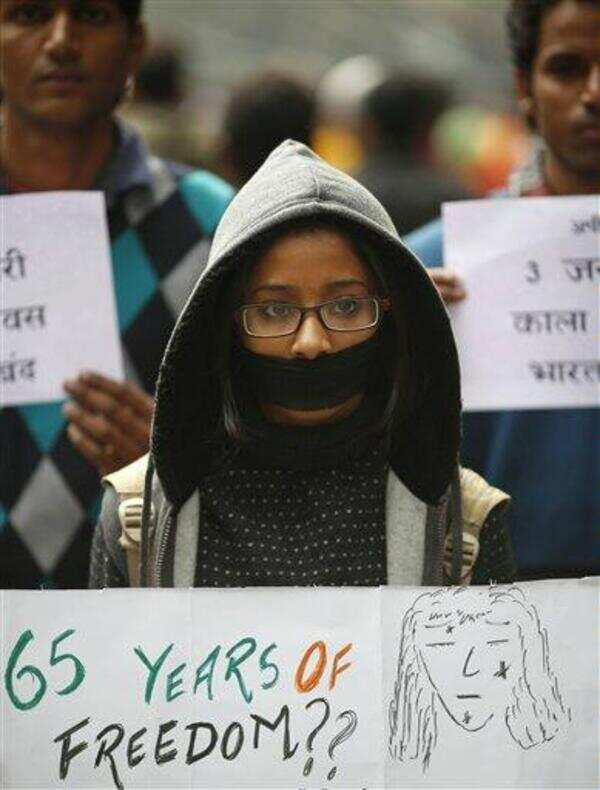 री
वस
बंद
3 जन
काला
भारत
65 YEARS OF
FREEDOM??